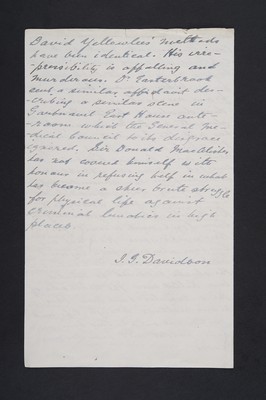 David Yellowlees' methods
have been identical. His irre-
pressibility is appalling and
murderous. Dr Easterbrook
sent a similar affidavit des-
cribing a similar scene in
Gartnavel East House ante-
room which the General Me-
dical Council to its disgrace
ignored. Sir Donald MacAlister
has not covered himself with
honour in refusing help in what
has become a sheer brute struggle
for physical life against
criminal lunatics in high
places
J. G. Davidson